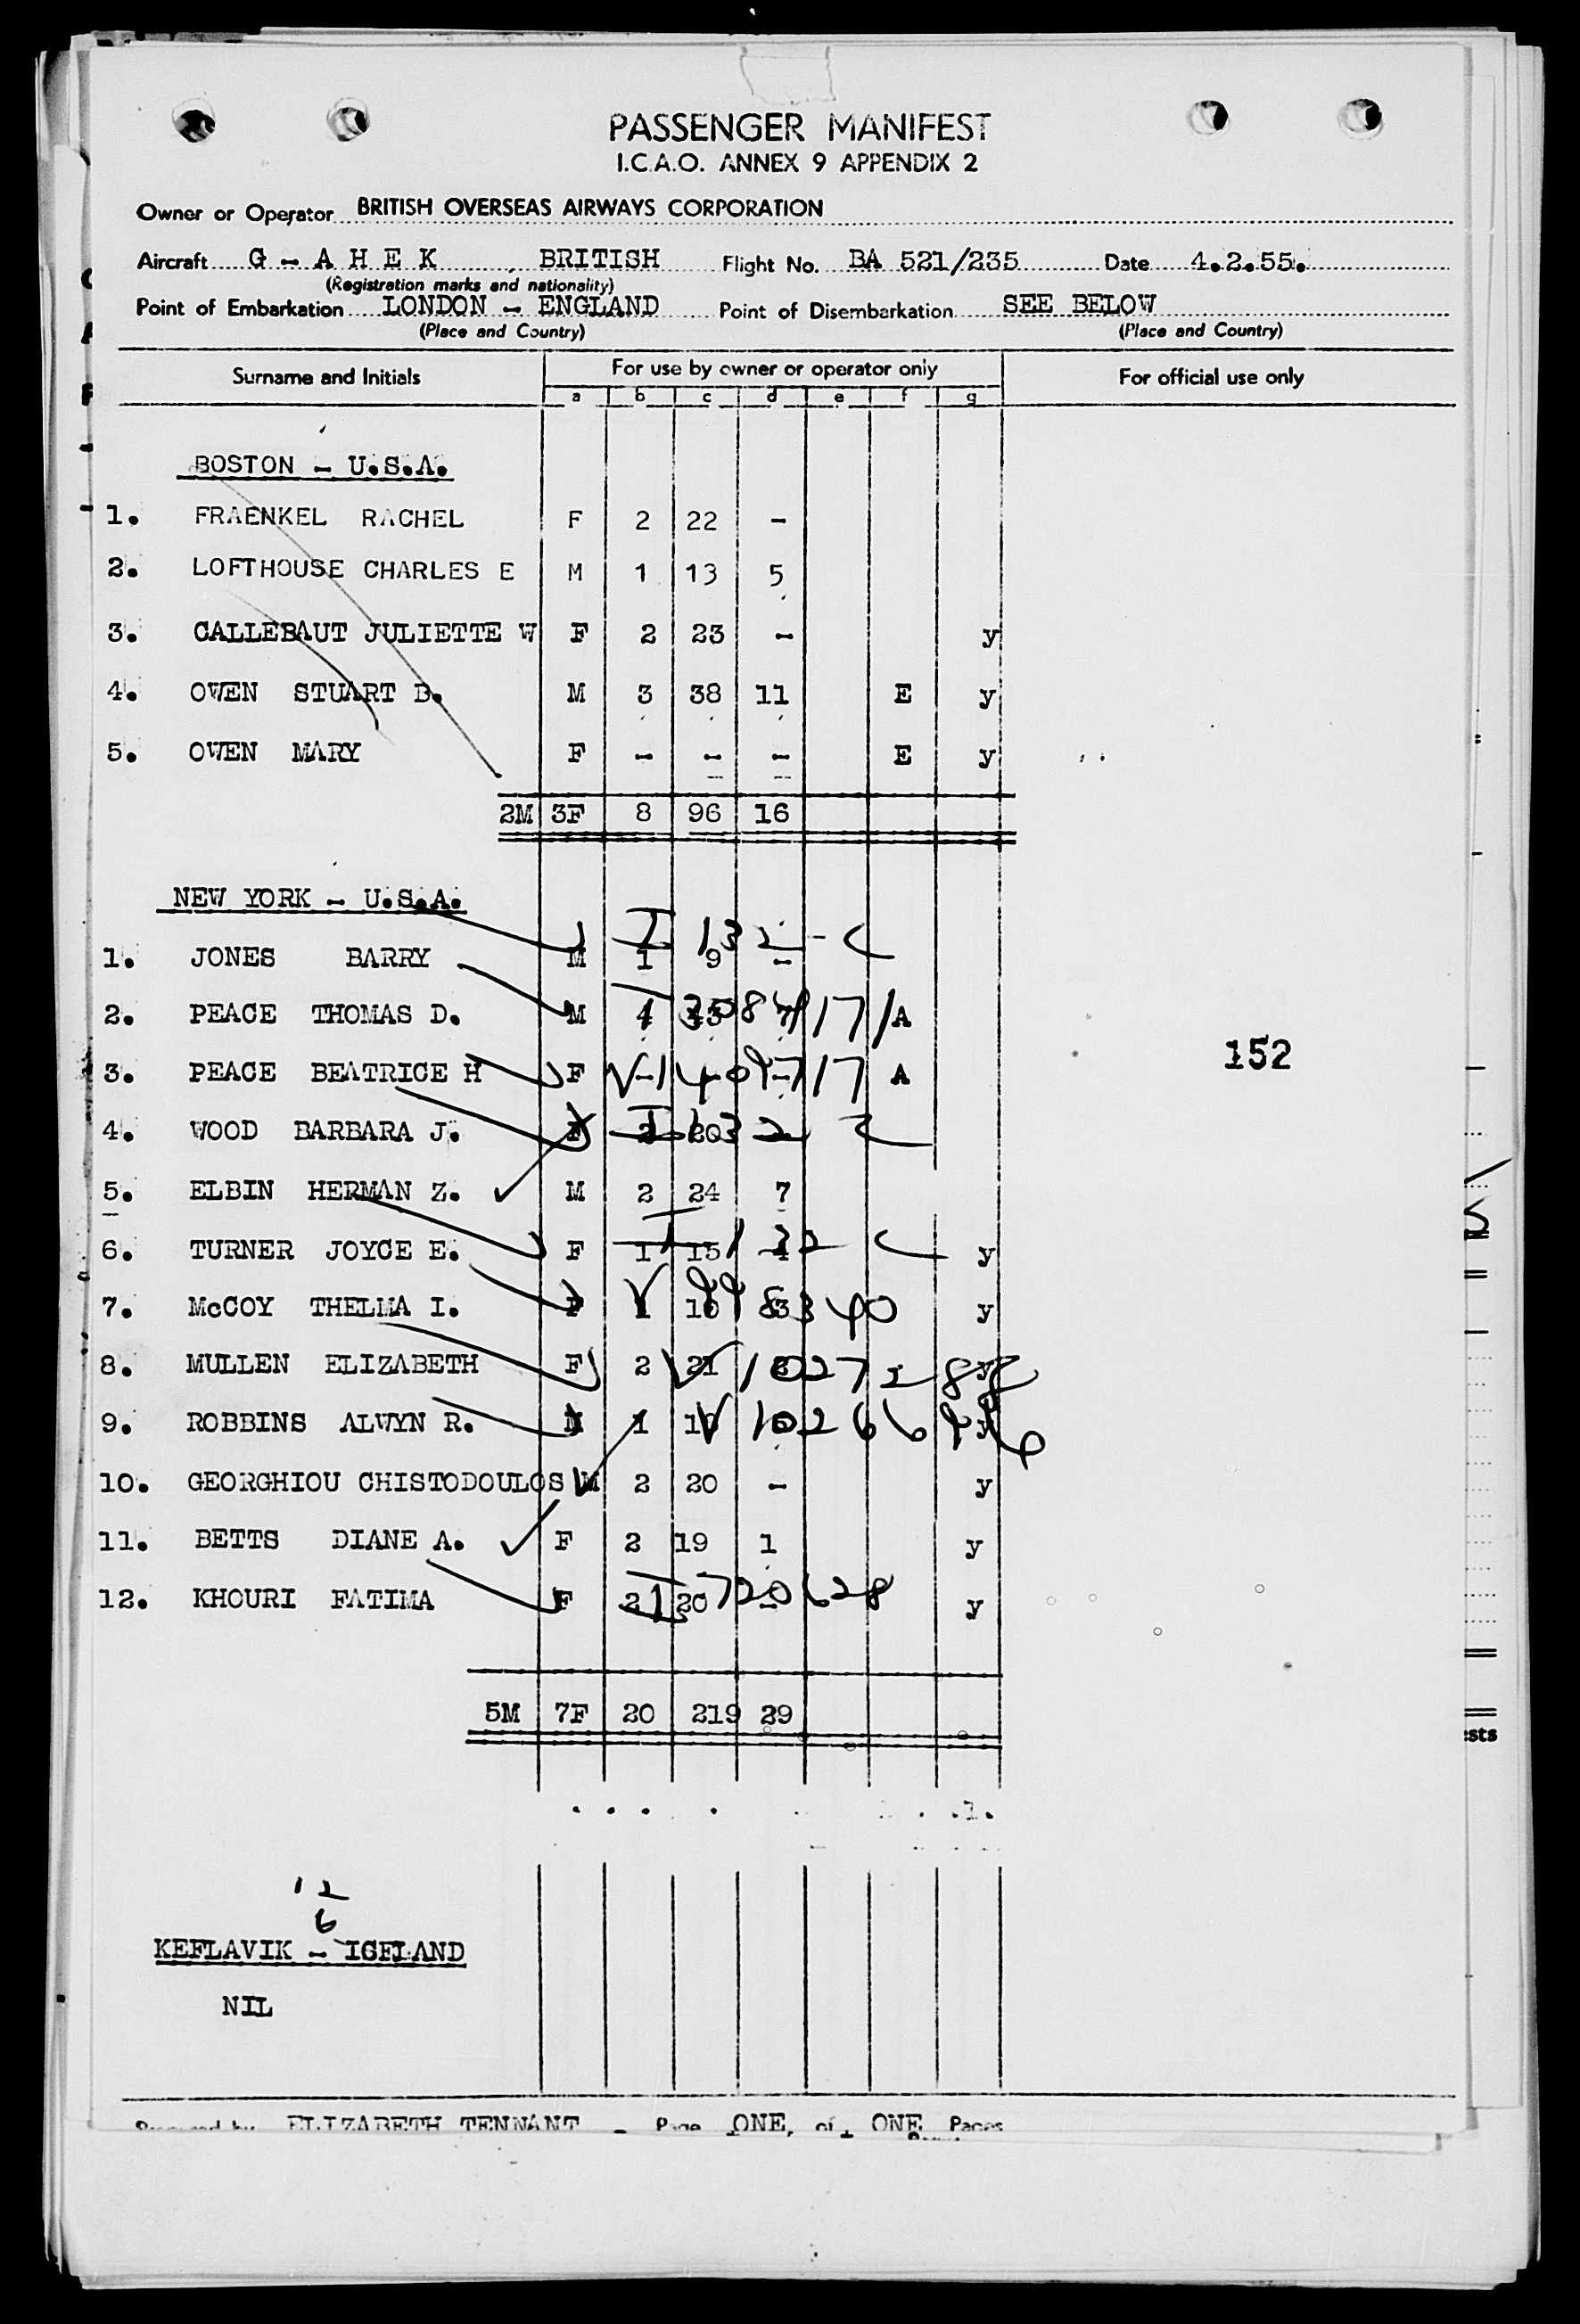 PASSENGER MANIFEST
I.C.A.O. ANNEX 9 APPENDIX 2
Owner or Operator BRITISH OVERSEAS AIRWAYS CORPORATION
Aircraft G - A H E K BRITISH Flight No. BA 521/235 Date 4.2.55.
(Registration marks and nationality)
Point of Embarkation LONDON - ENGLAND Point of Disembarkation SEE BELOW
(Place and Country) (Place and Country)
Surname and Initials For use by owner or operator only For official use only
a b c d e f g
BOSTON - U.S.A.
1. FRAENKEL RACHEL F 2 22 -
2. LOFTHOUSE CHARLES E M 1 13 5
3. CALLEBAUT JULIETTE W F 2 23 - y
4. OWEN STUART B. M 3 38 11 E y
5. OWEN MARY F - - - E y
2M 3F 8 96 16
NEW YORK - U.S.A.
1. JONES BARRY M 1 9 -
2. PEACE THOMAS D. M A
3. PEACE BEATRICE H F A
152
4. WOOD BARBARA J. F 2 20 -
5. ELBIN HERMAN Z. M 2 24 7
6. TURNER JOYCE E. F 1 15 y
7. McCOY THELMA I. F 1 y
8. MULLEN ELIZABETH F 2 21 y
9. ROBBINS ALWYN R. M 1 y
10. GEORGHIOU CHISTODOULOS M 2 20 - y
11. BETTS DIANE A. F 2 19 1 y
12. KHOURI FATIMA F 2 20 - y
5M 7F 20 219 29
12
6
KEFLAVIK - ICELAND
NIL
Prepared by ELIZABETH TENNANT - Page ONE of ONE Pages